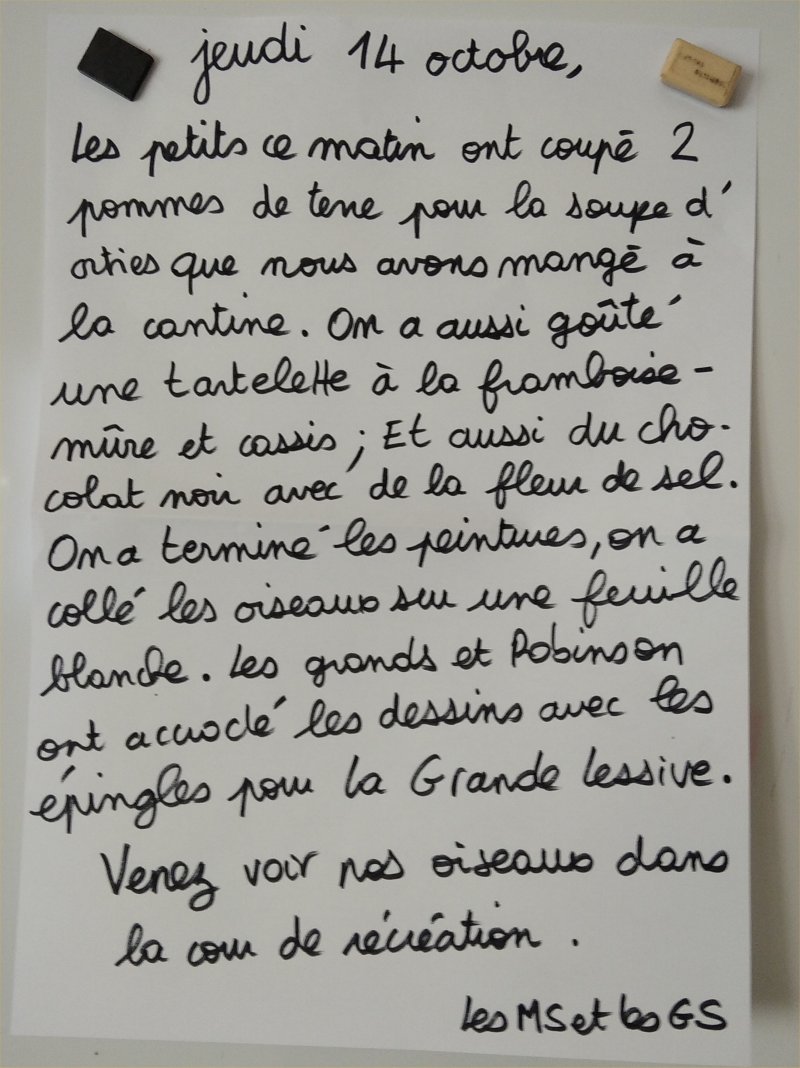 jeudi 14 octobre,
Les petits ce matin ont coupé 2
pommes de terre pour la soupe d'
orties que nous avons mangé à
la cantine. On a aussi goûté
une tartelette à la framboise-
mûre et cassis ; Et aussi du cho-
colat noir avec de la fleur de sel.
On a terminé les peintures, on a
collé les oiseaux sur une feuille
blanche. Les grands et Robinson
ont accroché les dessins avec les
épingles pour la Grande lessive.
Venez voir nos oiseaux dans
la cour de récréation.
Les MS et les GS